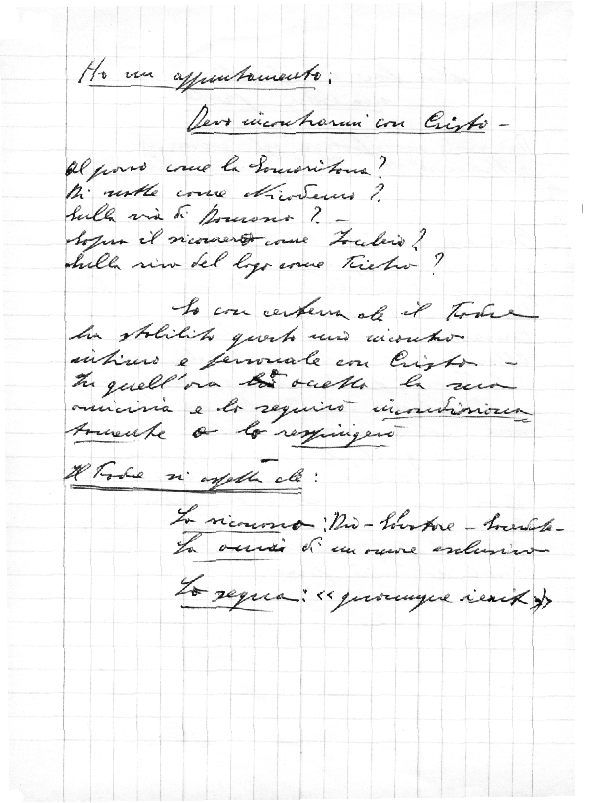 Ho un appuntamento:
Devo incontrarmi con Cristo -
Al pozzo come la Samaritana?
Di notte come Nicodemo?
Sulla via di Damasco? -
Sopra il sicomoro come Zaccheo?
Sulla riva del lago come Pietro?
So con certezza che il Padre
ha stabilito questo mio incontro
intimo e personale con Cristo -
In quell'ora o accetto la sua
amicizia e lo seguirò incondiziona
tamente o lo respingerò
Il Padre si aspetta che:
Lo riconosca: Dio - Salvatore - Sacerdote -
Lo ami di un amore esclusivo
Lo segua: «quocumque ierit»